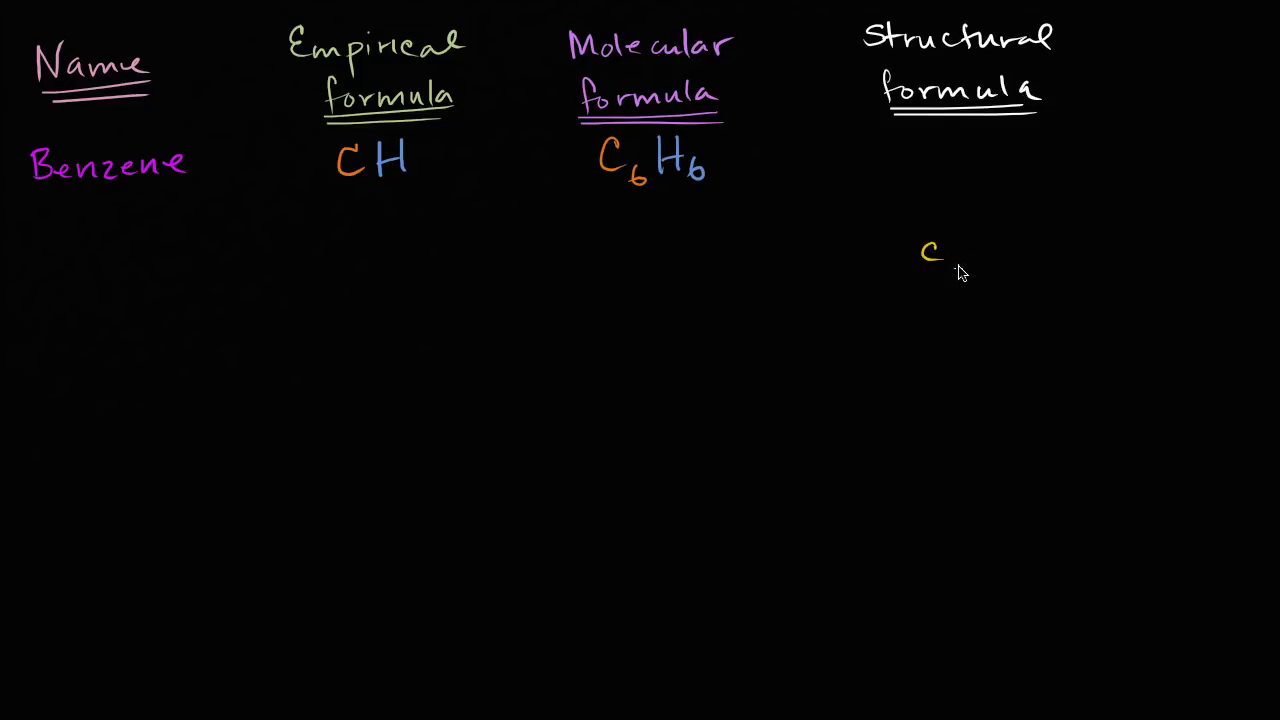 Name
Empirical
formula
Molecular
formula
Structural
formula
Benzene
CH
C6H6
C